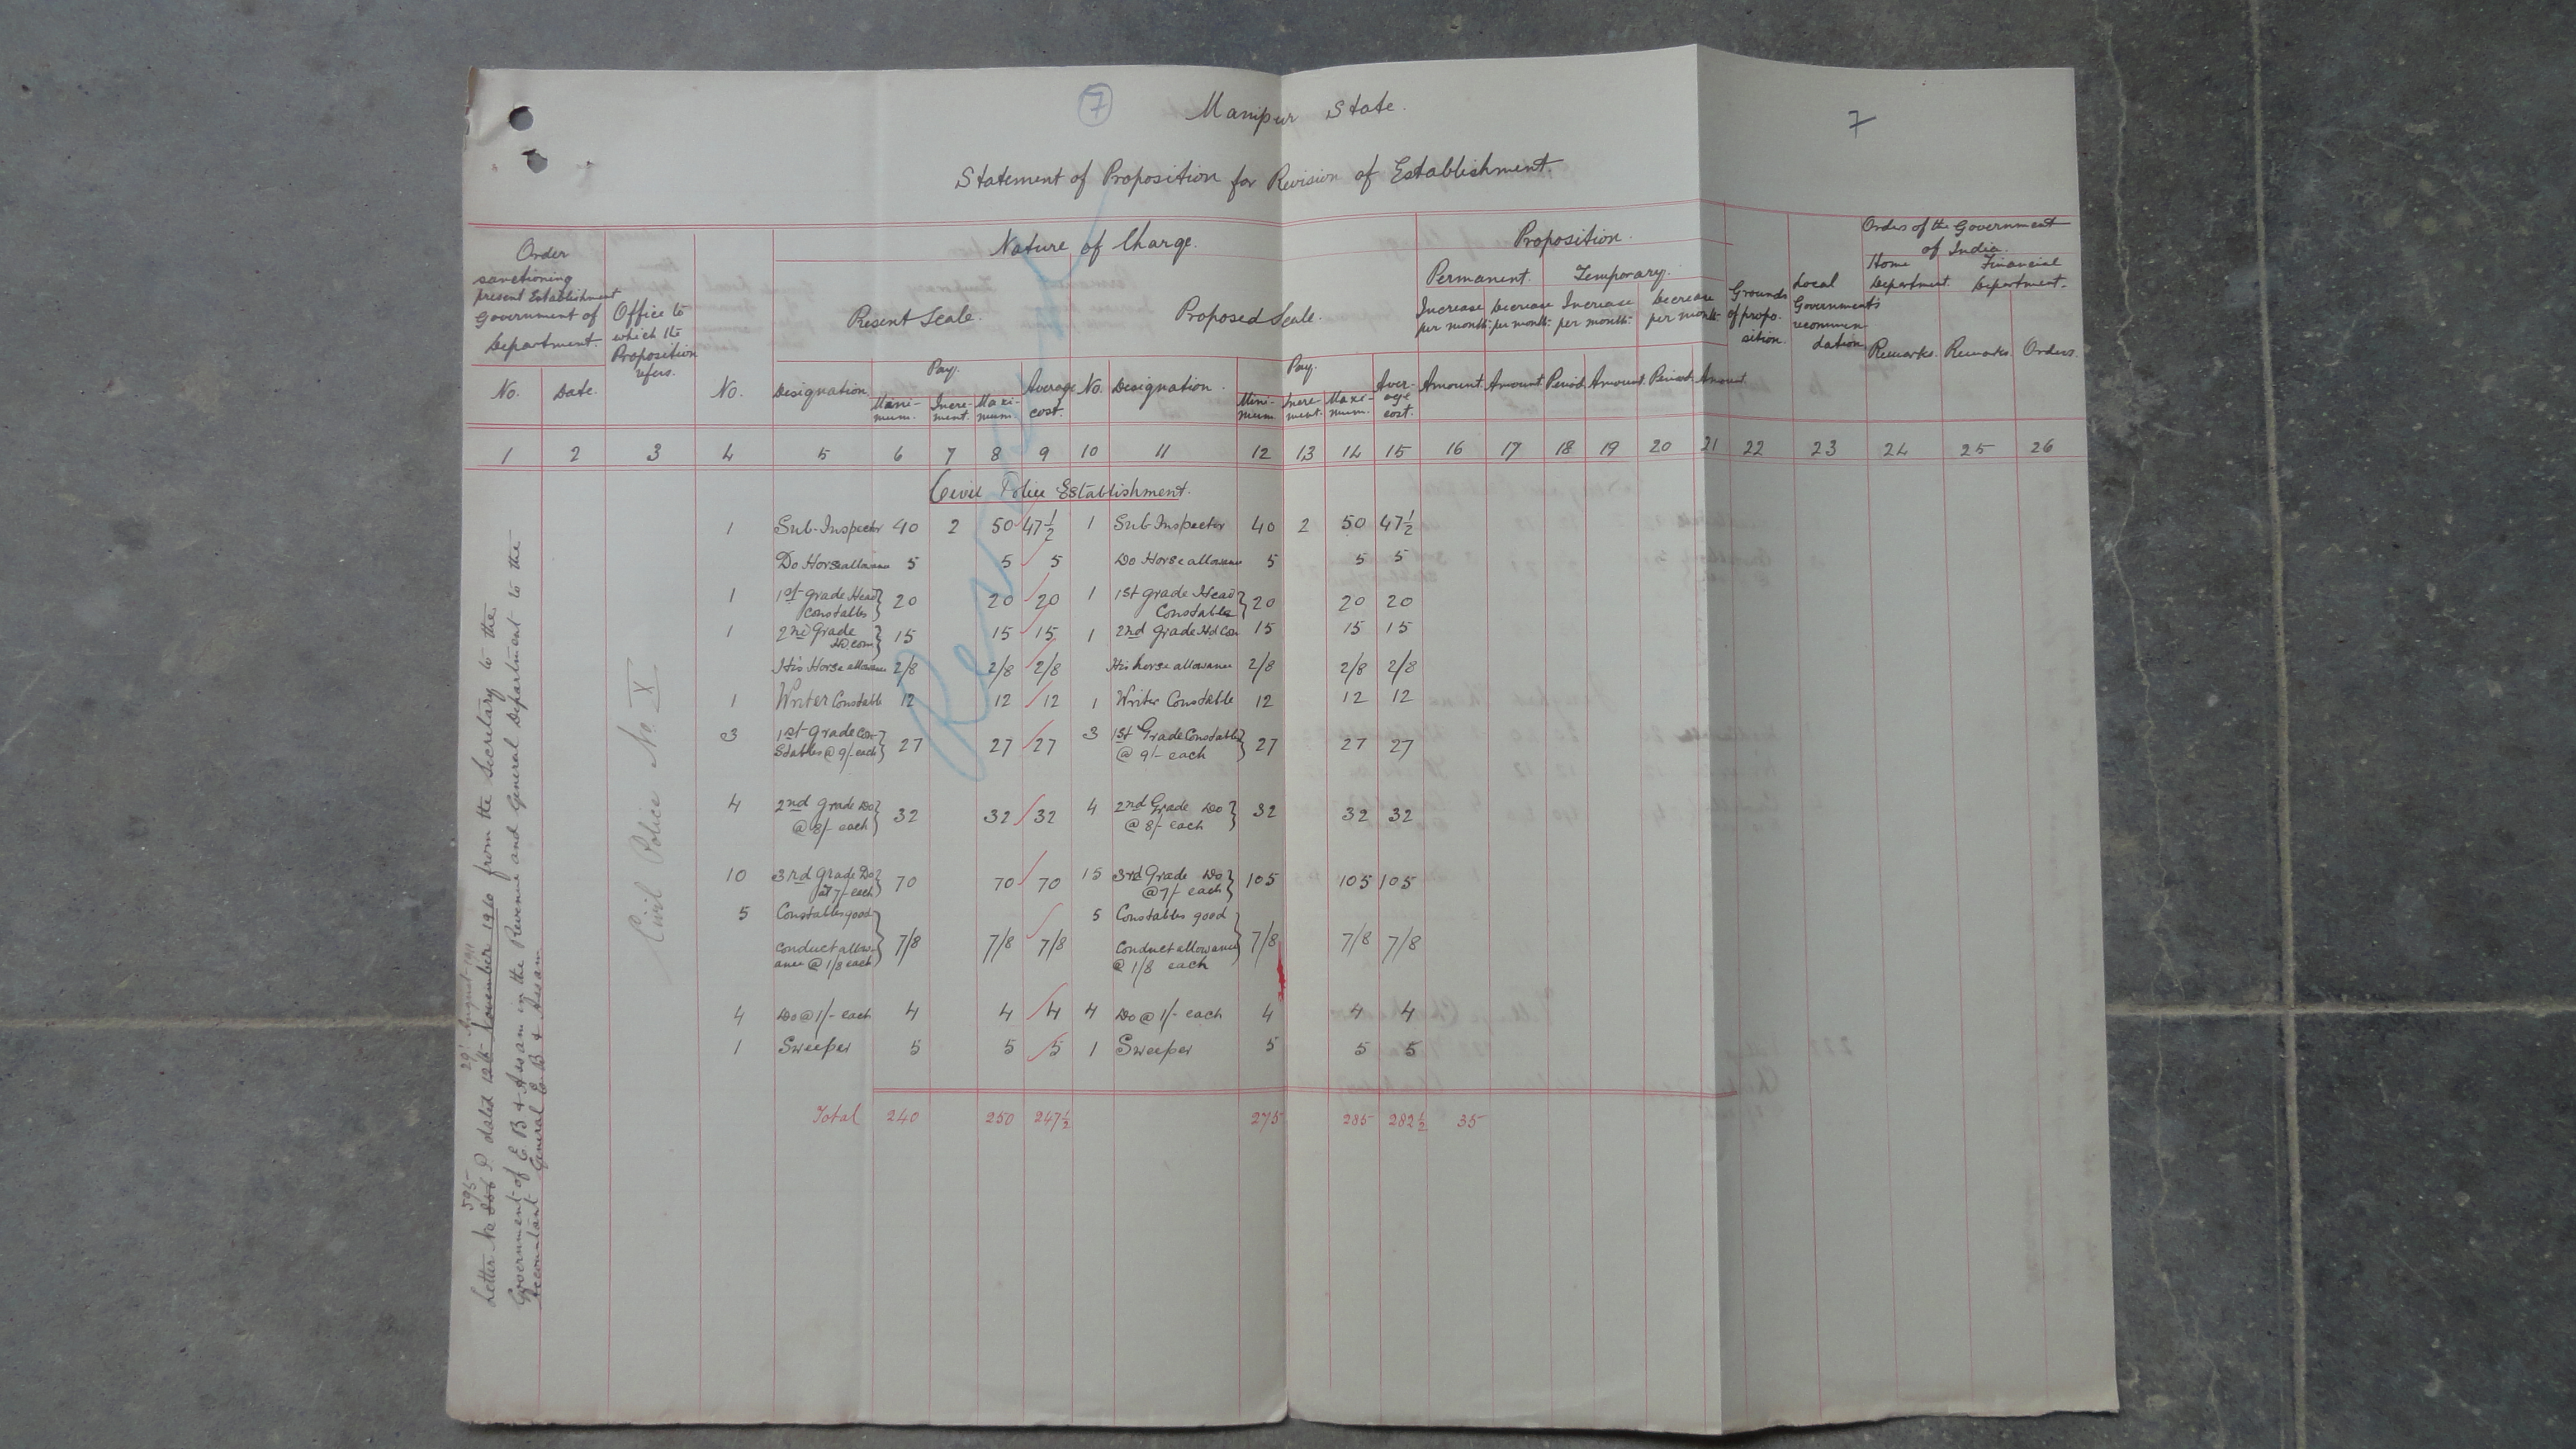 7
Manipur State.
7
Statement of Proposition for Revision of Establishment.
Order sanctioning present Establishment Government of Department.
Office to which the Proposition refers.
Nature of Charge.
Present Scale.
Proposed Scale.
Proposition.
Permanent. Temporary.
Increase per month. Decrease per month. Increase per month. Decrease per month.
Grounds of proposition.
Local Government's recommendation.
Orders of the Government of India.
Home Department. Financial Department.
No. Date. No. Designation Pay. Minimum. Increment. Maximum. Average cost. No. Designation. Pay. Minimum Increment. Maximum. Average cost. Amount. Amount. Period. Amount. Period. Amount. Remarks. Remarks. Orders.
1 2 3 4 5 6 7 8 9 10 11 12 13 14 15 16 17 18 19 20 21 22 23 24 25 26
Civil Police Establishment.
1 Sub-Inspector 40 2 50 47½ 1 Sub Inspector 40 2 50 47½
Do Horse allowance 5 5 5 Do Horse allowance 5 5 5
1 1st grade Head Constables } 20 20 20 1 1st grade Head Constables } 20 20 20
1 2nd Grade Hd. Con } 15 15 15 1 2nd grade Hd Con 15 15 15
His Horse allowance 2/8 2/8 2/8 His horse allowance 2/8 2/8 2/8
1 Writer Constable 12 12 12 1 Writer Constable 12 12 12
3 1st grade Constables @ 9/- each } 27 27 27 3 1st Grade Constables @ 9/- each } 27 27 27
4 2nd grade Do @ 8/- each } 32 32 32 4 2nd Grade Do @ 8/- each } 32 32 32
10 3rd grade Do at 7/- each } 70 70 70 15 3rd Grade Do @ 7/- each } 105 105 105
5 Constables good conduct allowance @ 1/8 each } 7/8 7/8 7/8 5 Constables good conduct allowance @ 1/8 each } 7/8 7/8 7/8
4 Do @ 1/- each 4 4 4 4 Do @ 1/- each 4 4 4
1 Sweeper 5 5 5 1 Sweeper 5 5 5
Total 240 250 247½ 275 285 282½ 35
Civil Police No. X
595 29th August 1911
Letter No P. dated 12th November 1910 from the Secretary to the
Government of E. B & Assam in the Revenue and General Department to the
Accountant General E. B & Assam